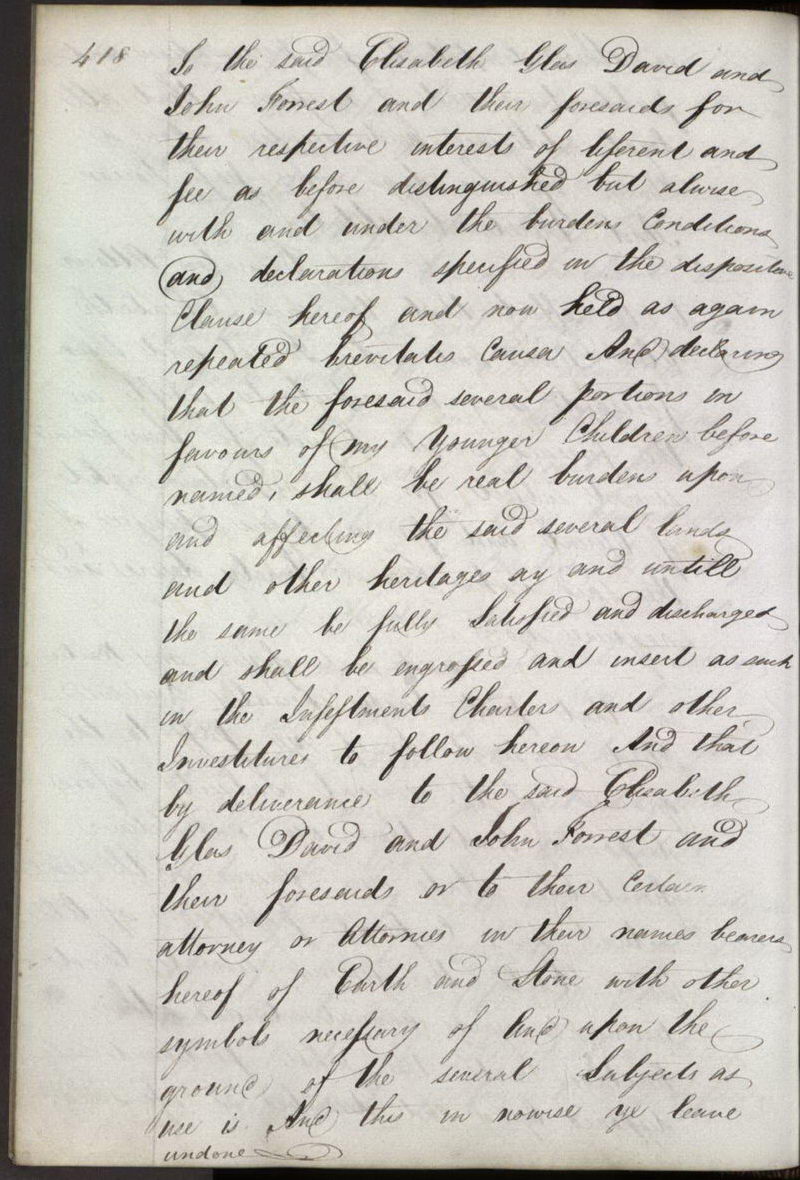 418
To the said Elisabeth Glas David and
John Forrest and their foresaids for
their respective interests of liferent and
fee as before distinguished but alwise
with and under the burdens Conditions
and declarations specified in the dispositive
Clause hereof and now held as again
repeated brevitatis Causa And declaring
that the foresaid several portions in
favours of my Younger Children before
named, shall be real burdens upon
and affecting the said several lands
and other heritages ay and untill
the same be fully Satisfied and discharged
and shall be engrossed and insert as such
in the Infeftments Charters and other
Investitures to follow hereon And that
by deliverance to the said Elisabeth
Glas David and John Forrest and
their foresaids or to their Certain
attorney or Attornies in their names bearers
hereof of Earth and Stone with other
symbols necessary of and upon the
ground of the several Subjects as
use is And this in nowise ye leave
undone